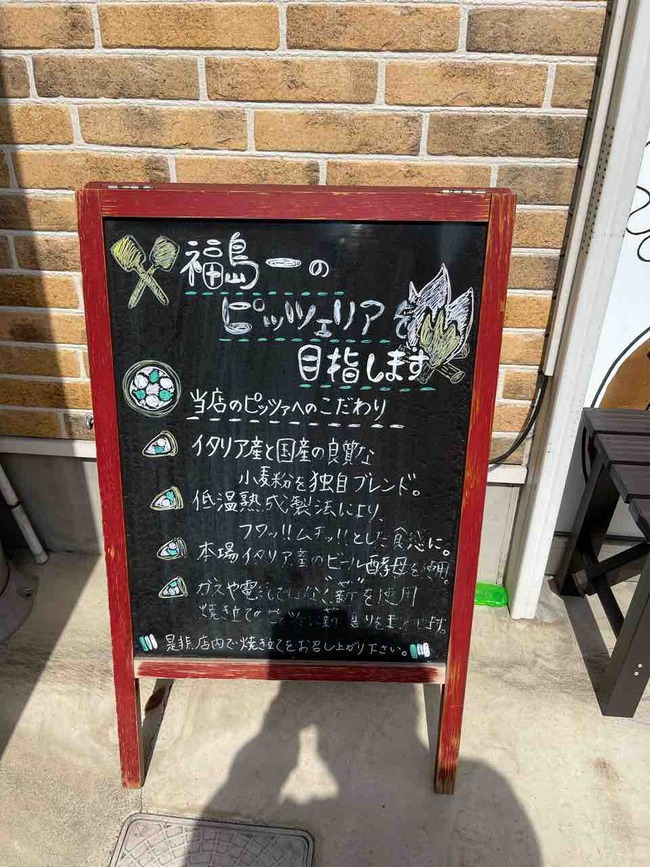 福島一の
ピッツェリアを
目指します
当店のピッツァへのこだわり
イタリア産と国産の良質な
小麦粉を独自ブレンド。
低温熟成製法により、
フワッ!!ムチッ!!とした食感に。
本場イタリア産のビール酵母を使用
ガスや電気ではなく"薪"を使用
焼き立ての
是非店内で焼き立てをお召し上がり下さい。